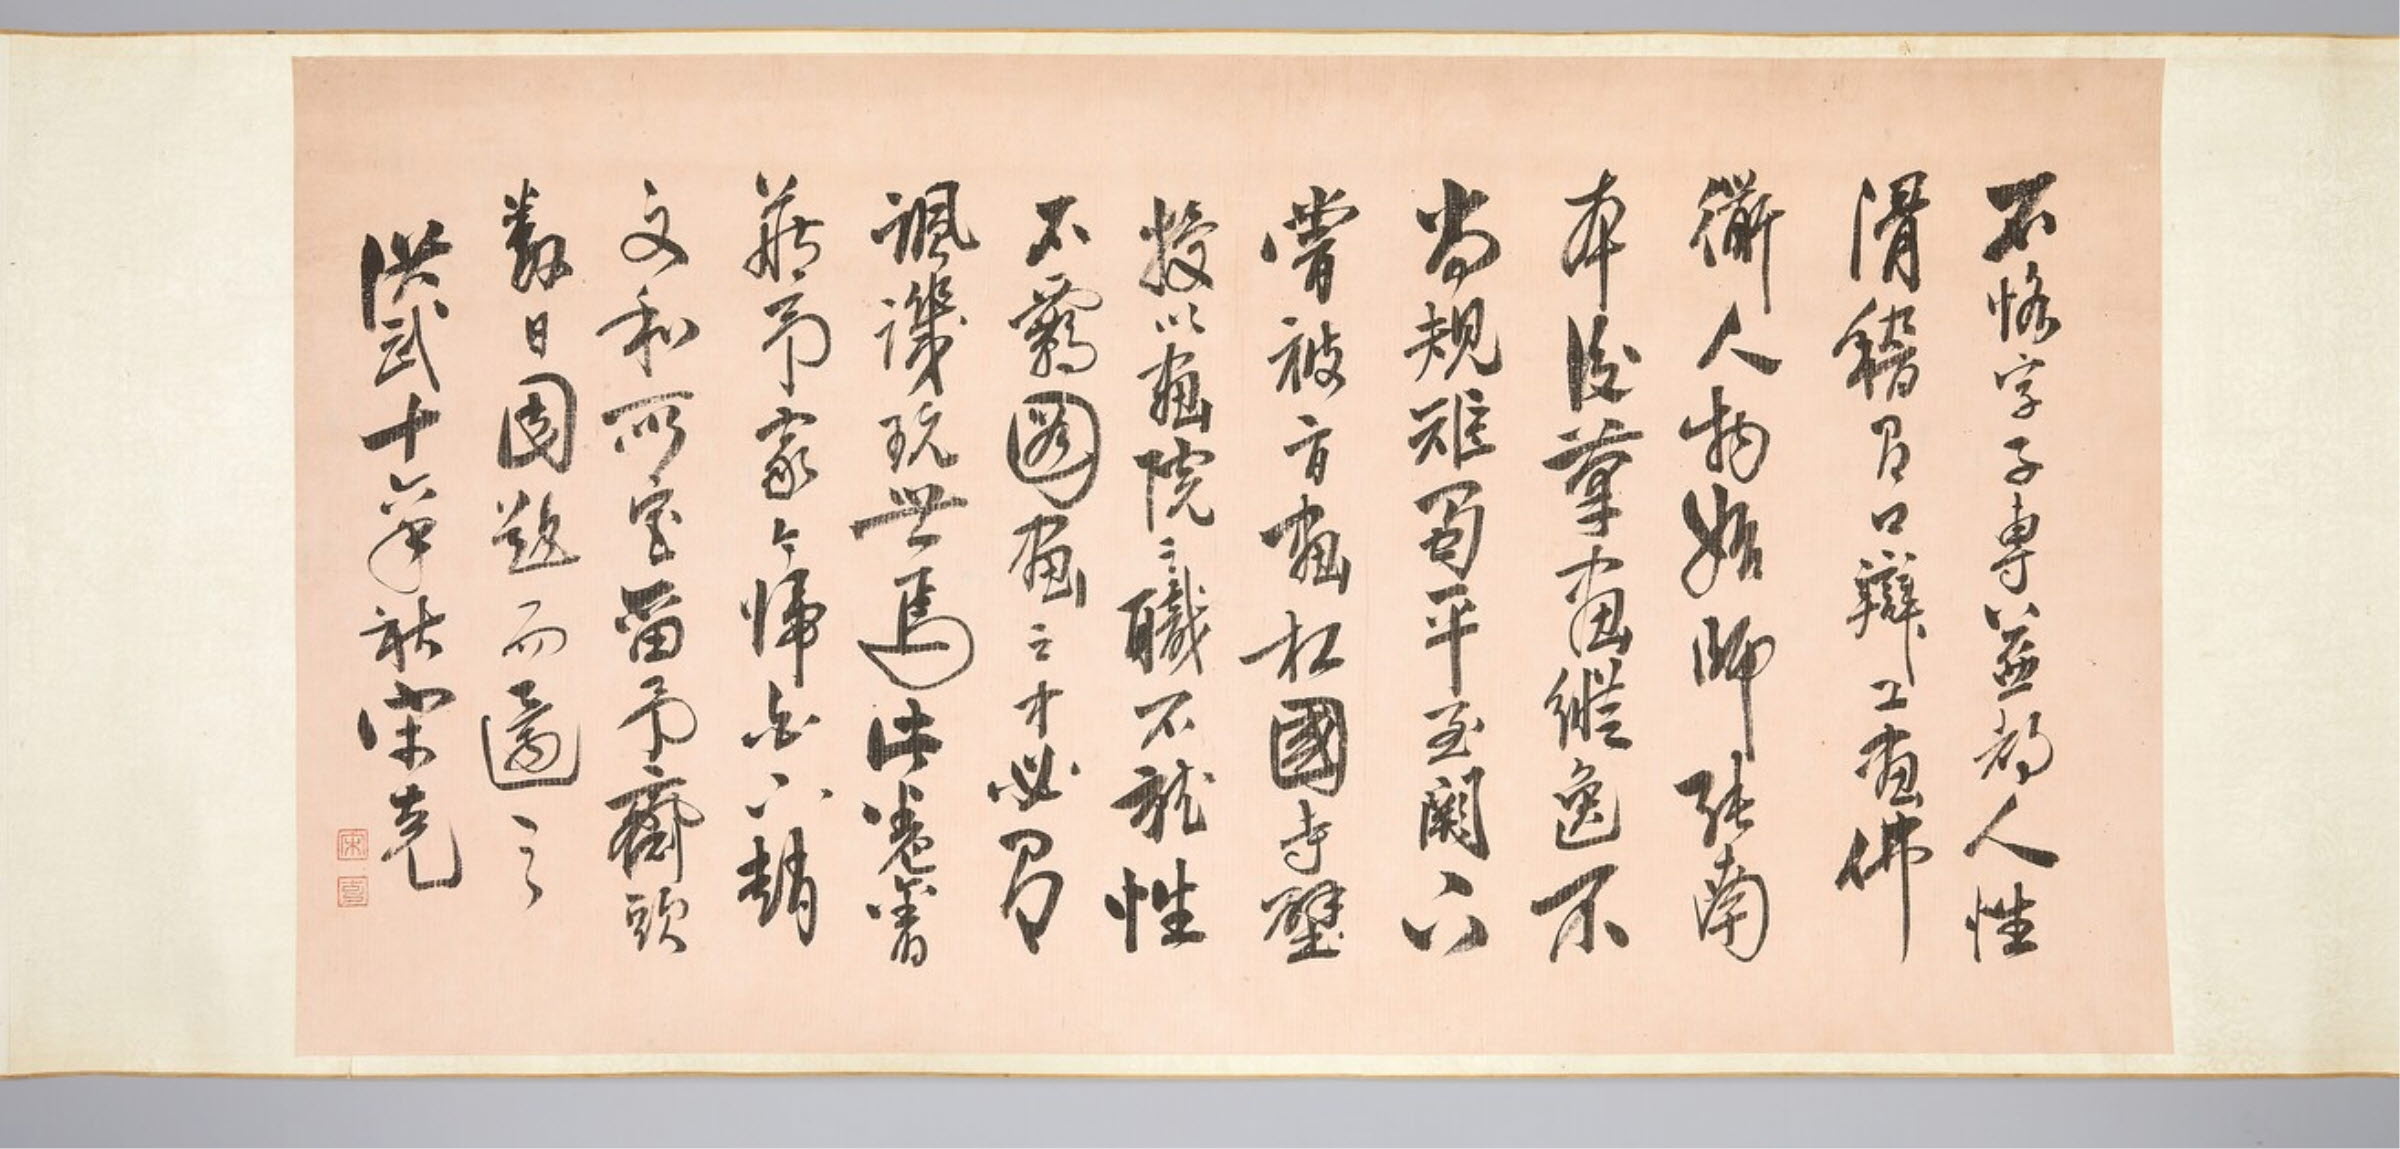 石恪字子專益都人性
滑稽有口辯工畫佛
衜人物始師張南
本後筆畫縱逸不
尚規矩蜀平至闕下
嘗被旨畫相國寺壁
授以畫院之職不就性
不羈圖畫之才必有
諷譏玩世焉此卷舊
藏予家今歸
文和所
數日因題而還之
洪武十年秋宋克